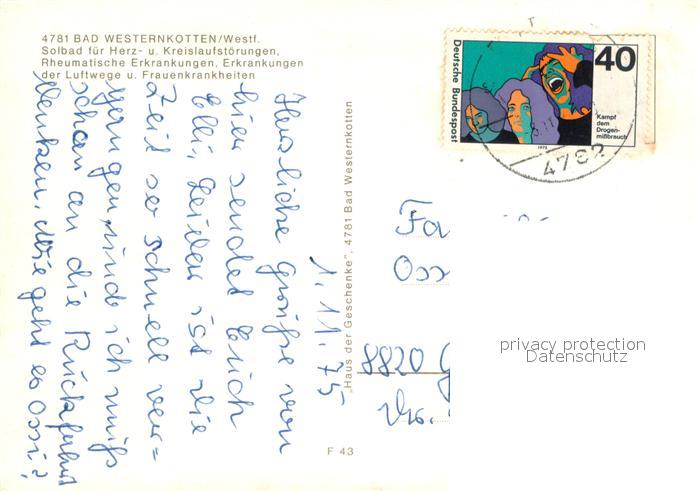 4781 BAD WESTERNKOTTEN/Westf.
Solbad für Herz- u. Kreislaufstörungen,
Rheumatische Erkrankungen, Erkrankungen
der Luftwege u. Frauenkrankheiten
1.11.75
Herzliche Grüße von
hier sendet Euch
Elli, Leider ist die
Zeit so schnell ver=
gangen, und ich muß
schon an die Rückfahrt
denken. Wie geht es Ossi?
„Haus der Geschenke", 4781 Bad Westernkotten
F 43
Deutsche Bundespost
40
Kampf
dem
Drogen-
mißbrauch
1975
4782
Fa
Oss
8820 G
privacy protection
Datenschutz